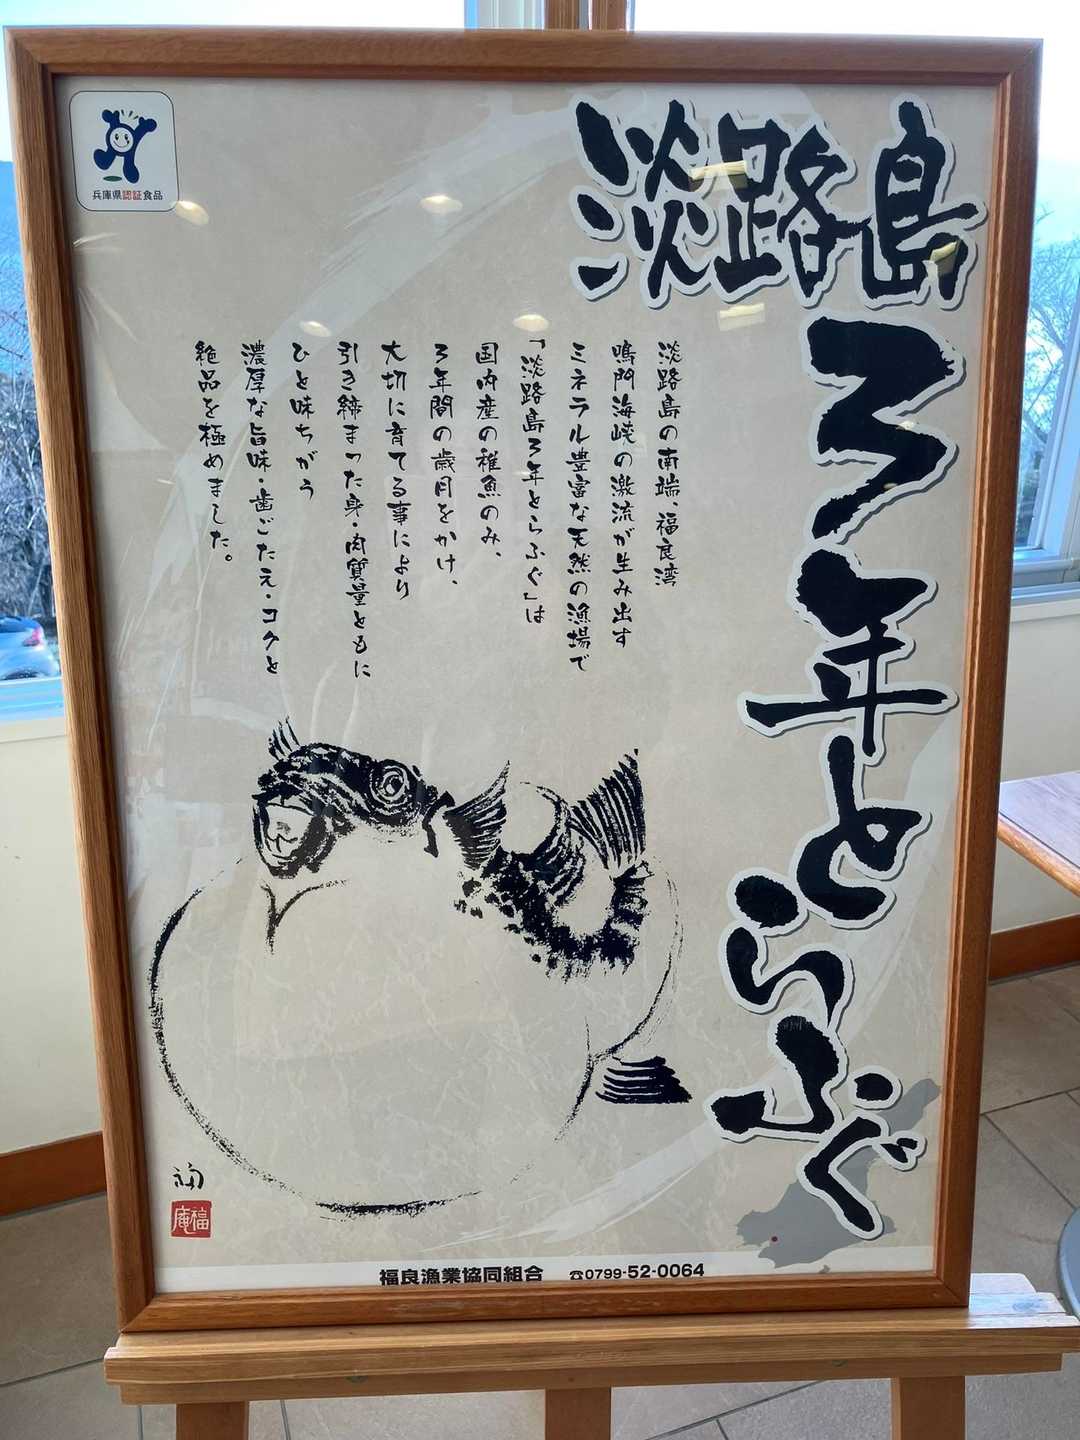 兵庫県認証食品
淡路島
3年とらふぐ
淡路島の南端、福良湾
鳴門海峡の激流が生み出す
ミネラル豊富な天然の漁場で
「淡路島3年とらふぐ」は
国内産の稚魚のみ、
3年間の歳月をかけ、
大切に育てる事により
引き締まった身・肉質量ともに
ひと味ちがう
濃厚な旨味・歯ごたえ・コクと
絶品を極めました。
福
福庵
福良漁業協同組合 ☎0799-52-0064